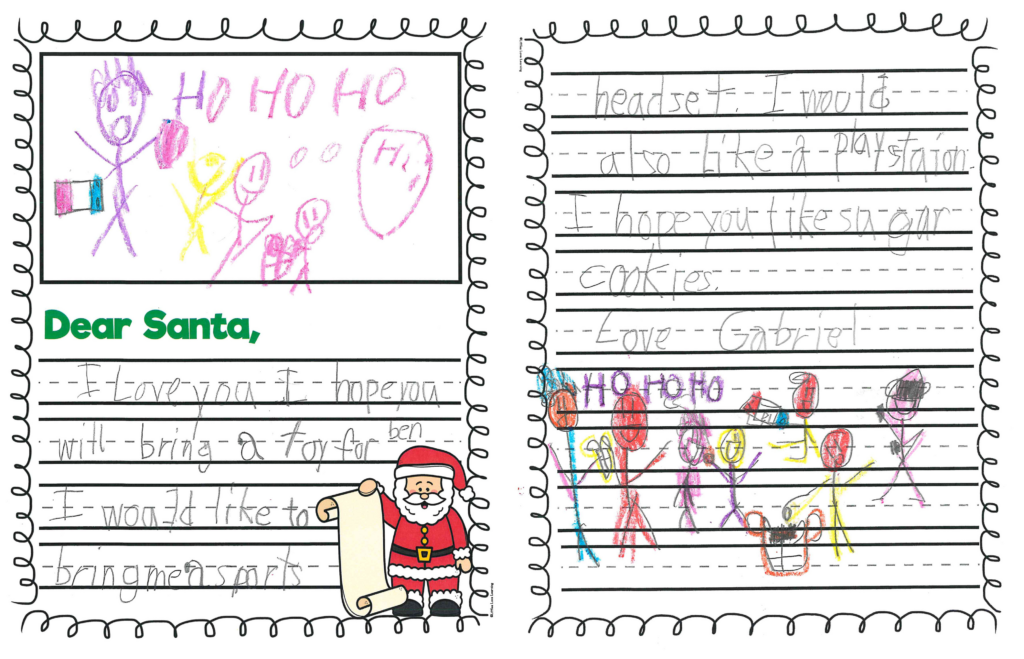 HO HO HO
Hi
Dear Santa,
I Love you I hope you
will bring a toy for ben
I would like to
bring me a sports
headset. I would
also Like a playstaion.
I hope you like sugar
cookies.
Love Gabriel
HO HO HO